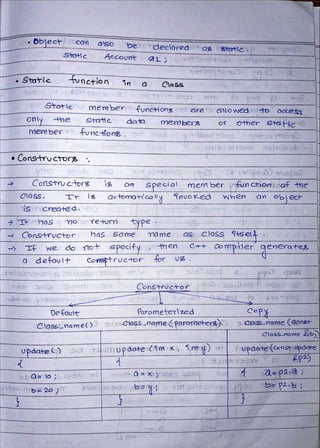 • Object can also be declared as static.
Static Account a1;
• Static function in a Class
Static member functions are allowed to access
only the static data members or other static
member functions.
• Constructors :
→ Constructors is an special member function of the
class. It is automatically invoked when an object
is created.
→ It has no return type.
→ Constructor has same name as class itself.
→ If we do not specify, then C++ compiler generates
a default constructor for us
Constructor
Default Parameterized Copy
Class_name() class_name(parameters) class_name (const
class_name &obj)
update() update (int x, int y) update (const update
&p2)
{ { {
a=10; a=x; a=p2.a;
b=20; b=y; b=p2.b;
} } }